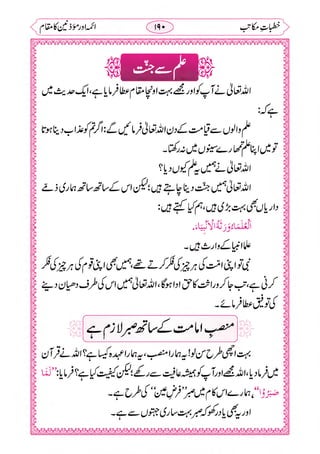 خطباتِ مکاتب ۱۹۰ ائمہ اور مؤذنین کا مقام
علم سے جنّت
اللہ تعالیٰ نے آپ کو اور مجھے بہت اونچا مقام عطا فرمایا ہے، ایک حدیث میں
ہے کہ:
علم والوں سے قیامت کے دن اللہ تعالیٰ فرمائیں گے: اگر تم کو عذاب دینا ہوتا
تو میں اپنا علم تمھارے سینوں میں نہ رکھتا۔
اللہ تعالیٰ نے ہمیں یہ علم کیوں دیا؟
اللہ تعالیٰ ہمیں جنّت دینا چاہتے ہیں؛ لیکن اس کے ساتھ ساتھ ہماری ذمے
داریاں بھی بہت بڑی ہیں، ہم کیا کہتے ہیں:
اَلْعُلَمَاءُ وَرَثَةُ الْاَنْبِيَاءِ.
علما انبیا کے وارث ہیں۔
تو نبی اپنی امت کی ہر چیز کی فکر کرتے تھے، ہمیں بھی اپنی قوم کی ہر چیز کی فکر
کرنی ہے، تب جا کر وراثت کا حق ادا ہوگا، اللہ تعالیٰ ہمیں اس کی طرف دھیان دینے
کی توفیق عطا فرمائے۔
منصبِ امامت کے ساتھ صبر لازم ہے
بہت اچھی طرح سن لو! یہ ہمارا منصب، یہ ہمارا عہدہ کیسا ہے؟ اللہ نے قرآن
میں فرما دیا، اللہ مجھے اور آپ کو ہمیشہ عافیت سے رکھے؛ لیکن یہ کیفیت کیا ہے؟ فرمایا: ”لَمَّا
صَبَرُوْا“، ہمارے اس کام میں صبر ”فرضِ عین“ کی طرح ہے۔
اور یہ بھی یاد رکھو کہ صبر بہت ساری جہتوں سے ہے۔